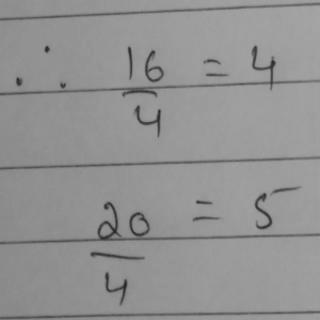 ∴ 16/4 = 4
20/4 = 5